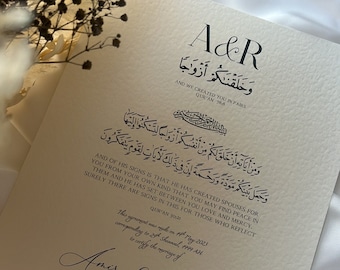 A&R
وَخَلَقْنَٰكُمْ أَزْوَٰجًا
AND WE CREATED YOU IN PAIRS
QUR'AN 78:8
وَمِنْ ءَايَٰتِهِۦٓ أَنْ خَلَقَ لَكُم مِّنْ أَنفُسِكُمْ أَزْوَٰجًا لِّتَسْكُنُوٓا۟ إِلَيْهَا
وَجَعَلَ بَيْنَكُم مَّوَدَّةً وَرَحْمَةً إِنَّ فِى ذَٰلِكَ لَءَايَٰتٍ لِّقَوْمٍ يَتَفَكَّرُونَ
AND OF HIS SIGNS IS THAT HE HAS CREATED SPOUSES FOR
YOU FROM YOUR OWN KIND THAT YOU MAY FIND PEACE IN
THEM AND HE HAS SET BETWEEN YOU LOVE AND MERCY.
SURELY THERE ARE SIGNS IN THIS FOR THOSE WHO REFLECT
This agreement was made on May 2023
corresponding to
to notify the marriage of